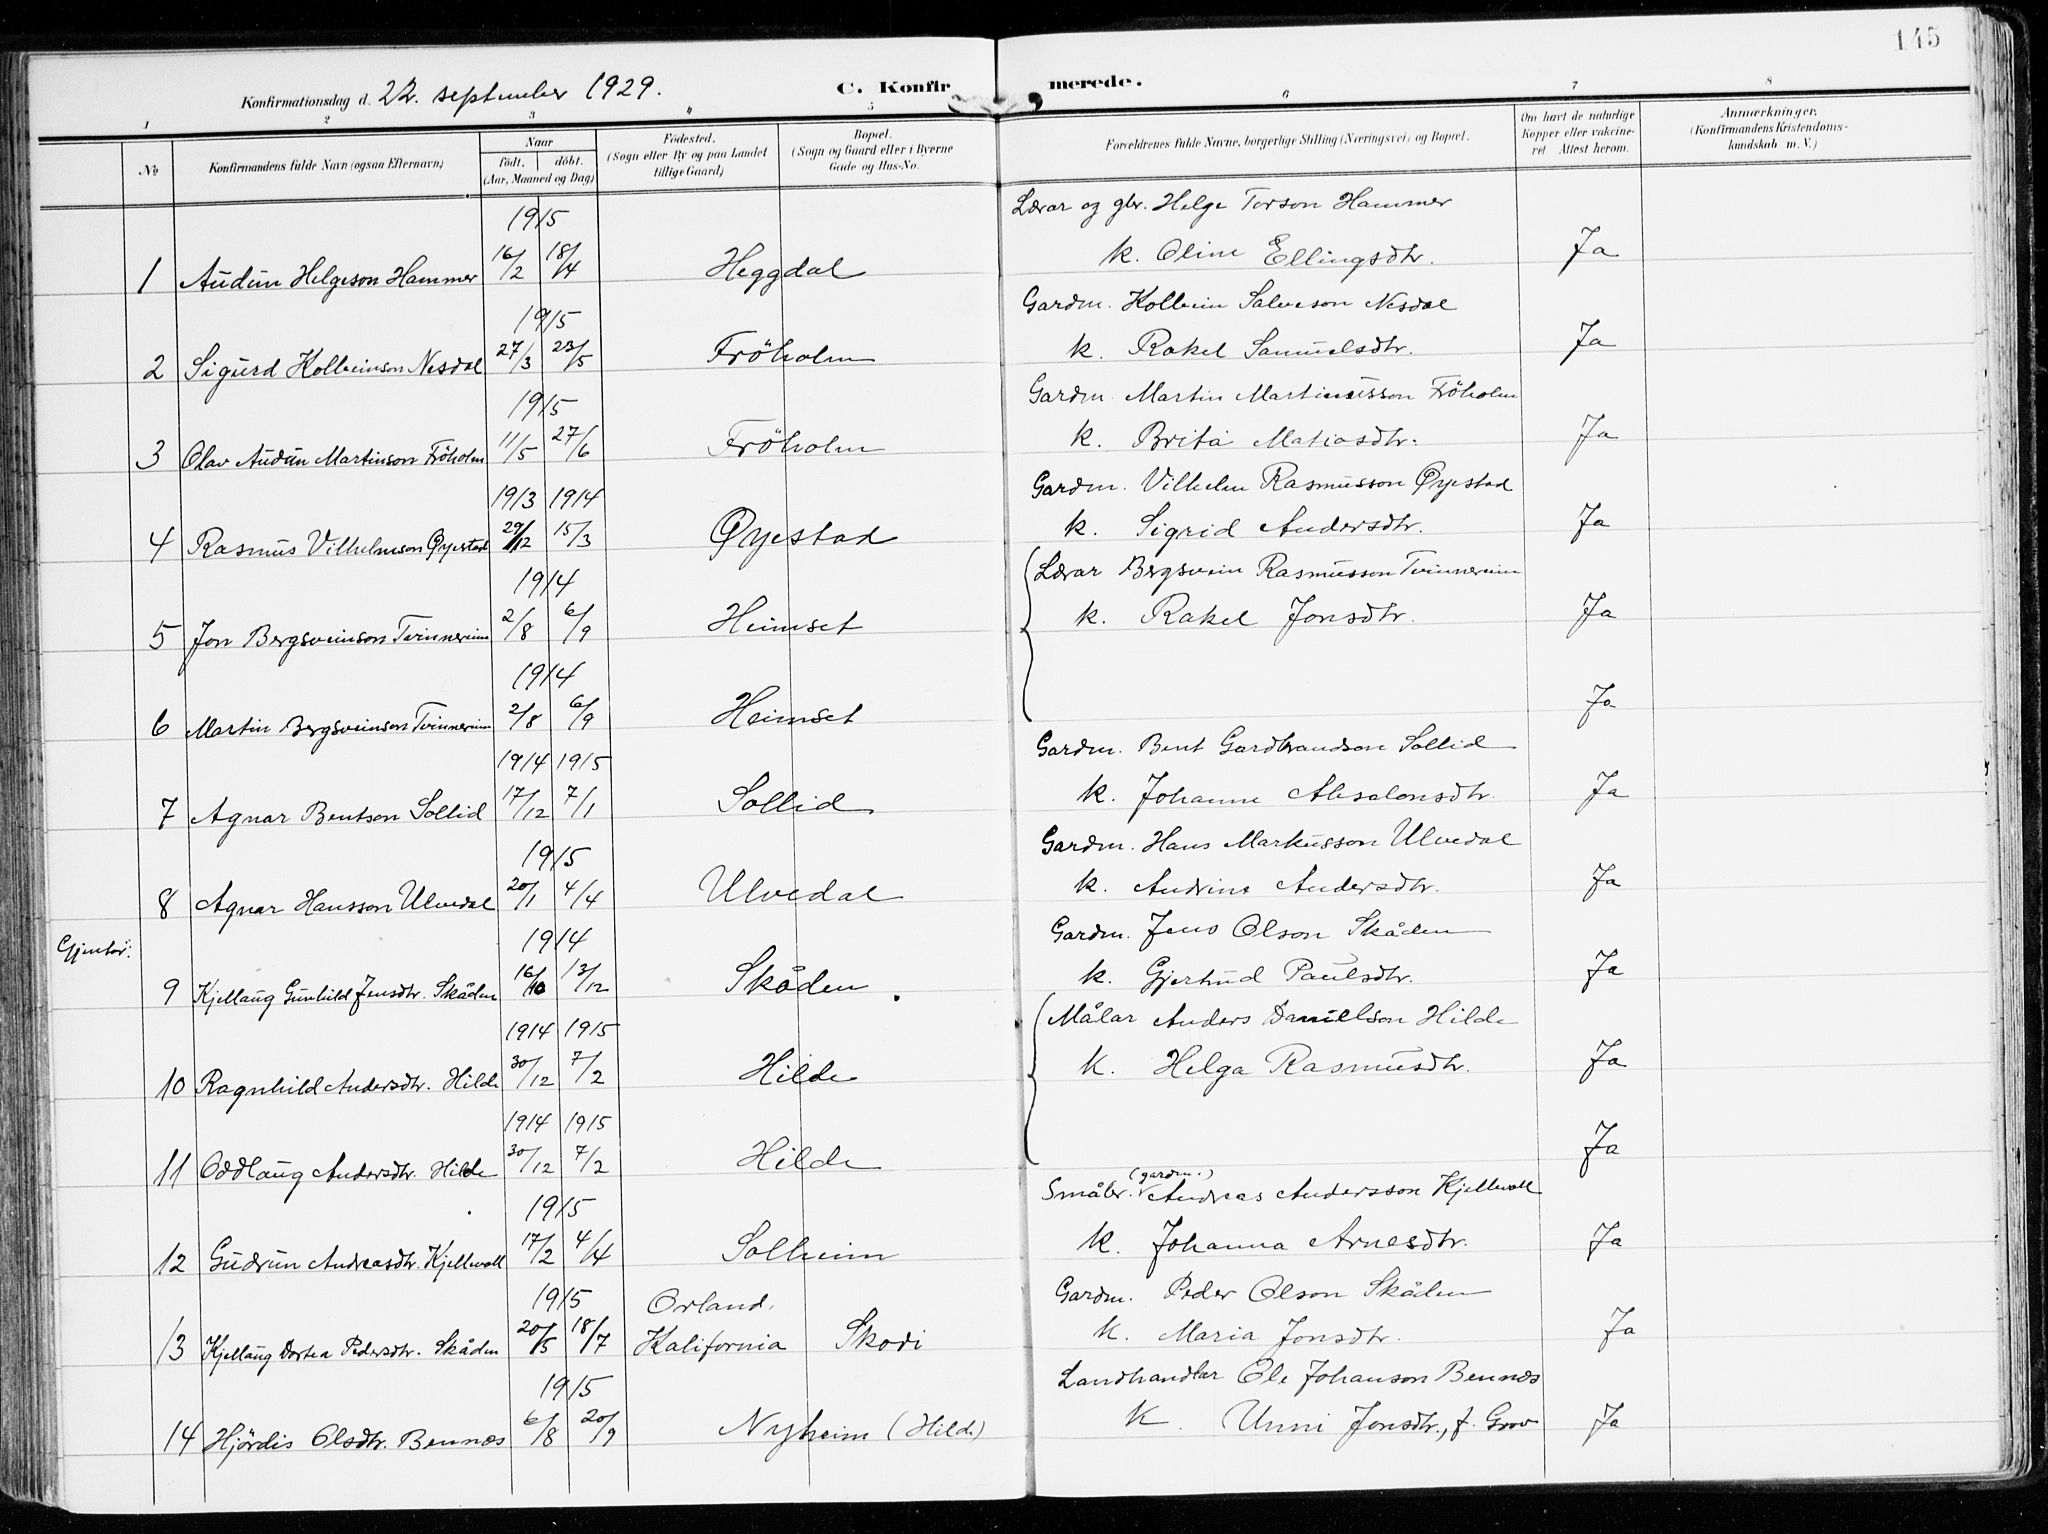 145
Konfirmationsdag d. 22. september 1929.
C. Konfirmerede.
1 2 3 4 5 6 7 8
No
Konfirmandens fulde Navn (ogsaa Efternavn)
Naar
født. døbt.
(Aar, Maaned og Dag)
Fødested.
(Sogn eller By og paa Landet
tillige Gaard)
Bopæl.
(Sogn og Gaard eller i Byerne
Gade og Hus-No.
Forældrenes fulde Navne, borgerlige Stilling (Næringsvei) og Bopæl.
Om havt de naturlige
Kopper eller vakcine-
ret Attest herom.
Anmærkninger.
(Konfirmandens Kristendoms-
kundskab m. V.)
1915
Lærar og gbr. Helge Torson Hammer
1 Audun Helgeson Hammer 16/2 18/4 Heggdal k. Oline Ellingsdtr. Ja
1915
Gardm. Kolbein Salveson Nesdal
2 Sigurd Kolbeinson Nesdal 27/3 23/5 Fröholm k. Rakel Samuelsdtr. Ja
1915
Gardm. Martin Martinusson Fröholm
3 Olav Audun Martinson Fröholm 11/5 27/6 Fröholm k. Brita Matiasdtr. Ja
1913 1914
Gardm. Vilhelm Rasmusson Øyestad
4 Rasmus Vilhelmson Øyestad 29/12 15/3 Øyestad k. Sigrid Andersdtr. Ja
1914
Lærar Bergsvein Rasmusson Tvinnereim
5 Jon Bergsveinson Tvinnereim 2/8 6/9 Heimset k. Rakel Jonsdtr. Ja
1914
6 Martin Bergsveinson Tvinnereim 2/8 6/9 Heimset Ja
1914 1915
Gardm. Bent Gardbrandson Sollid
7 Agnar Bentson Sollid 17/12 7/1 Sollid k. Johanne Absalonsdtr. Ja
1915
Gardm. Hans Markusson Ulvedal
8 Agnar Hansson Ulvedal 20/1 4/4 Ulvedal k. Andrine Andersdtr. Ja
Gjentor:
1914
Gardm. Jens Olson Skåden
9 Kjellaug Gunhild Jensdtr. Skåden 16/10 13/12 Skåden k. Gjertrud Paulsdtr. Ja
1914 1915
Målar Anders Danielson Hilde
10 Ragnhild Andersdtr. Hilde 30/12 7/2 Hilde k. Helga Rasmusdtr. Ja
1914 1915
11 Oddlaug Andersdtr. Hilde 30/12 7/2 Hilde Ja
1915
Småbr. (gardm.) Andreas Andersson Kjellevoll
12 Gudrun Andreasdtr. Kjellevoll 17/2 4/4 Solheim k. Johanna Arnesdtr. Ja
1915 Orland,
Gardm. Peder Olson Skåden
13 Kjellaug Dortea Pedersdtr. Skåden 20/5 18/7 Kalifornia Skodi k. Maria Jonsdtr. Ja
1915
Landhandlar Ole Johanson Bennæs
14 Hjördis Olsdtr. Bennæs 6/8 20/9 Nyheim (Hilde) k. Unni Jonsdtr., f. Grov Ja